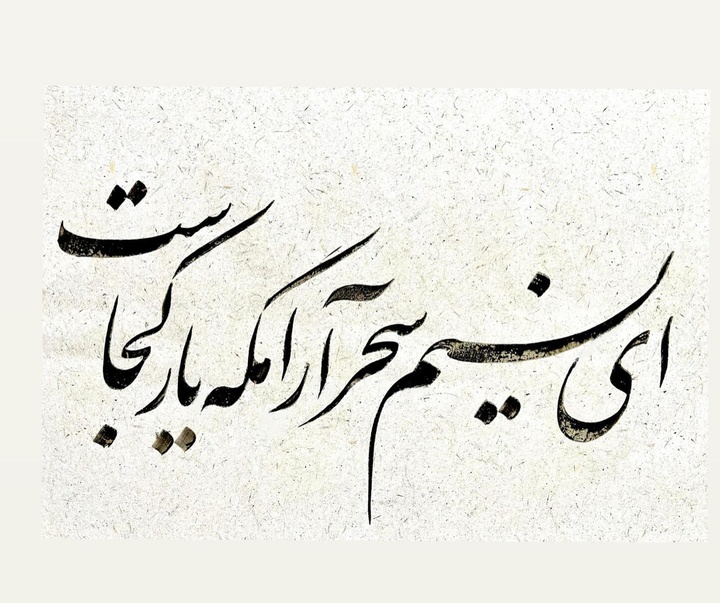 ای نسیم سحر آرامگه یار کجاست